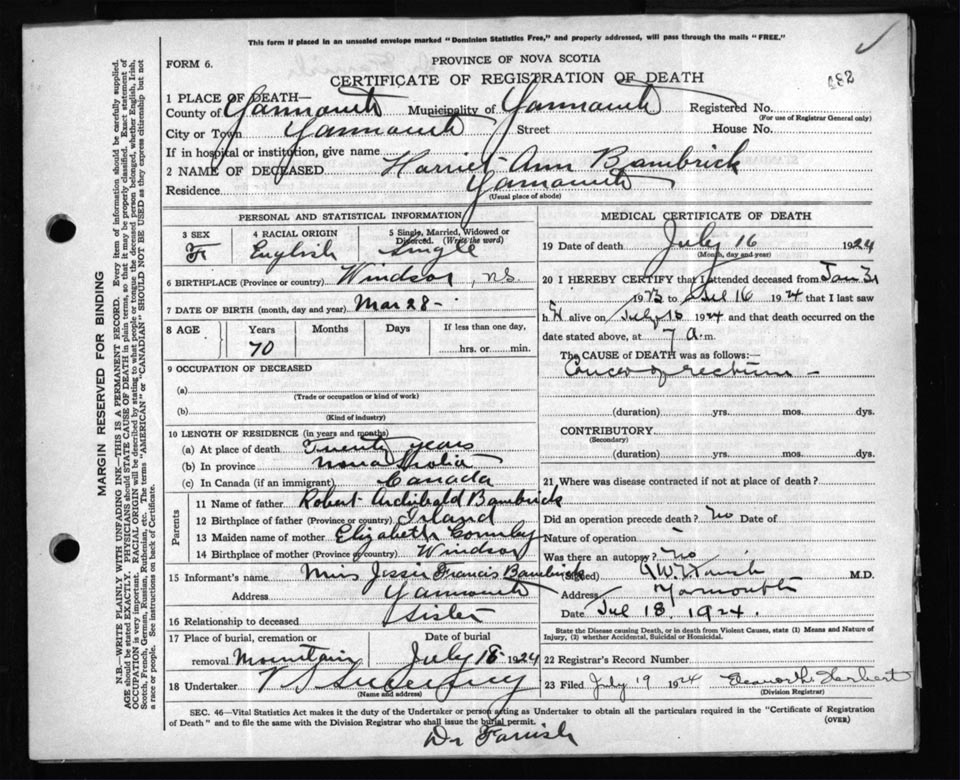 This form if placed in an unsealed envelope marked "Dominion Statistics Free," and properly addressed, will pass through the mails "FREE."
PROVINCE OF NOVA SCOTIA
FORM 6.
CERTIFICATE OF REGISTRATION OF DEATH
1 PLACE OF DEATH—
County of Yarmouth Municipality of Yarmouth Registered No.
(For use of Registrar General only)
City or Town Yarmouth Street House No.
If in hospital or institution, give name
2 NAME OF DECEASED Harriet Ann Bambrick
Residence Yarmouth
(Usual place of abode)
PERSONAL AND STATISTICAL INFORMATION
3 SEX 4 RACIAL ORIGIN 5 Single, Married, Widowed or Divorced. (Write the word)
F English Single
6 BIRTHPLACE (Province or country) Windsor, N.S.
7 DATE OF BIRTH (month, day and year) Mar 28 -
8 AGE Years Months Days If less than one day,
70 hrs. or min.
9 OCCUPATION OF DECEASED
(a)
(Trade or occupation or kind of work)
(b)
(Kind of industry)
10 LENGTH OF RESIDENCE (in years and months)
(a) At place of death Twenty years
(b) In province Nova Scotia
(c) In Canada (if an immigrant) Canada
Parents
11 Name of father Robert Archibald Bambrick
12 Birthplace of father (Province or country) Irland
13 Maiden name of mother Elizabeth
14 Birthplace of mother (Province or country) Windsor
15 Informant's name Miss Jessie Francis Bambrick
Address Yarmouth
16 Relationship to deceased Sister
17 Place of burial, cremation or Date of burial
removal Mountain July 18 1924
18 Undertaker
(Name and address)
MEDICAL CERTIFICATE OF DEATH
19 Date of death July 16 1924
(Month, day and year)
20 I HEREBY CERTIFY that I attended deceased from Jan
1923 to Jul 16 1924 that I last saw
h alive on July 16 1924 and that death occurred on the
date stated above, at 7 a.m.
The CAUSE of DEATH was as follows:—
Cancer of rectum -
(duration) yrs. mos. dys.
CONTRIBUTORY
(Secondary)
(duration) yrs. mos. dys.
21 Where was disease contracted if not at place of death?
Did an operation precede death? no Date of
Nature of operation
Was there an autopsy? no
(Signed) M.D.
Address Yarmouth
Date Jul 18, 1924.
State the Disease causing Death, or in death from Violent Causes, state (1) Means and Nature of
Injury, (2) whether Accidental, Suicidal or Homicidal.
22 Registrar's Record Number
23 Filed July 19 1924 Herbert
(Division Registrar)
SEC. 46—Vital Statistics Act makes it the duty of the Undertaker or person acting as Undertaker to obtain all the particulars required in the "Certificate of Registration
of Death" and to file the same with the Division Registrar who shall issue the burial permit. (OVER)
Dr Farish
MARGIN RESERVED FOR BINDING
N.B.—WRITE PLAINLY WITH UNFADING INK—THIS IS A PERMANENT RECORD. Every item of information should be carefully supplied.
AGE should be stated EXACTLY. PHYSICIANS should STATE CAUSE OF DEATH in plain terms, so that it may be properly classified. Exact statement of
OCCUPATION is very important. RACIAL ORIGIN will be described by stating to what people or tongue the deceased person belonged, whether English, Irish,
Scotch, French, German, Russian, Ruthenian, etc. The terms "AMERICAN" or "CANADIAN" SHOULD NOT BE USED as they express citizenship but not
a race or people. See instructions on back of Certificate.